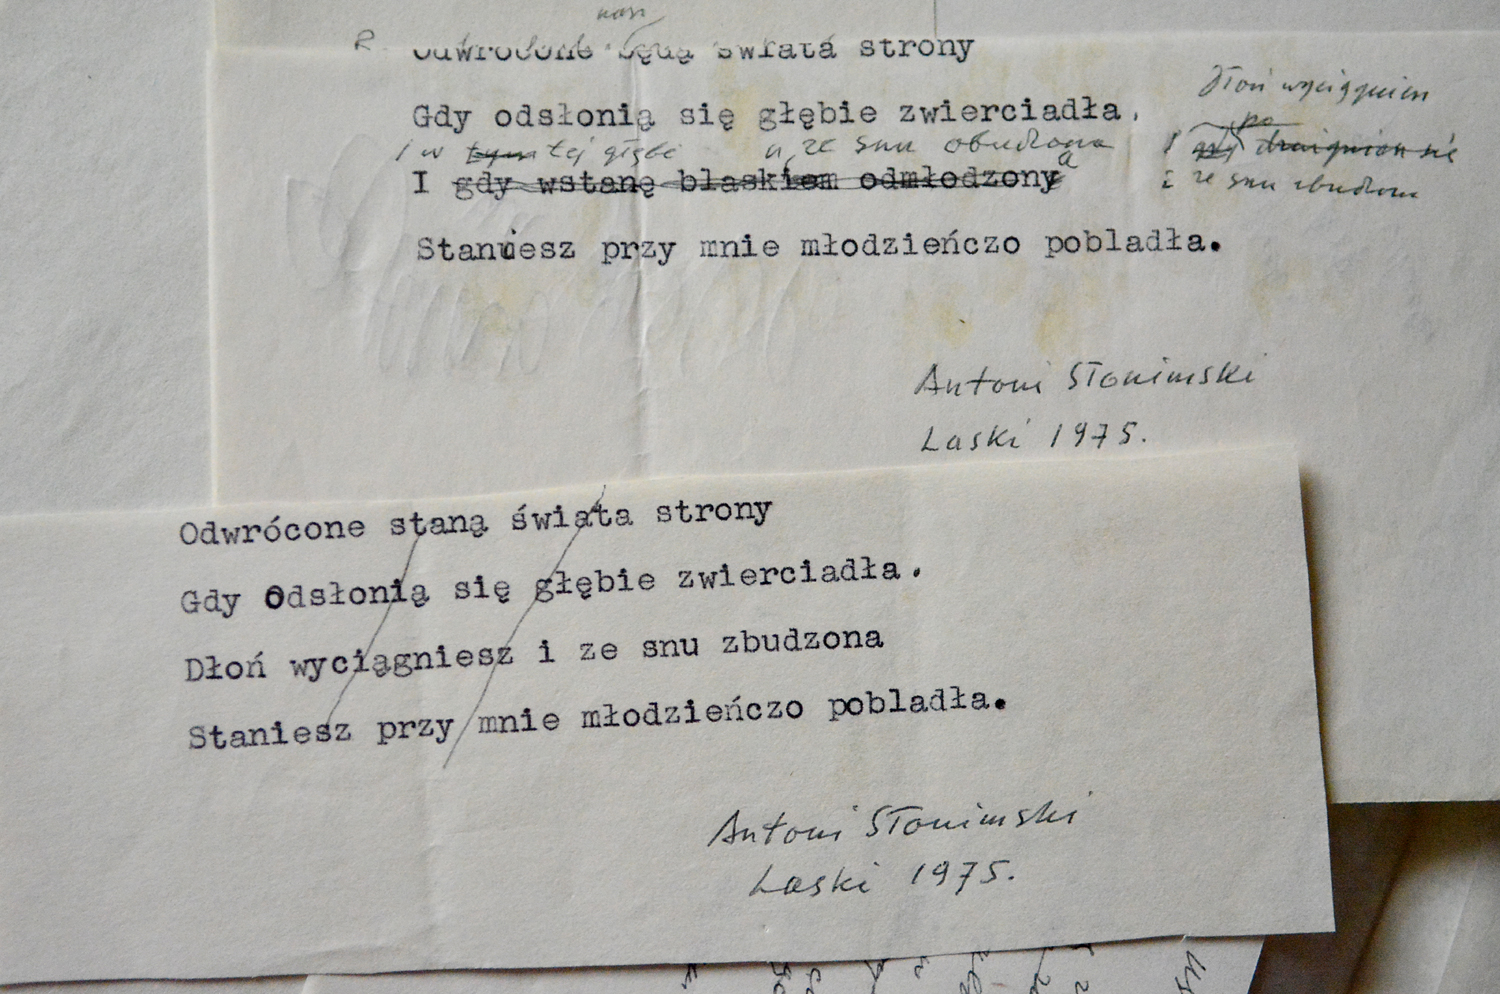 R. Odwrócone będą świata strony
Gdy odsłonią się głębie zwierciadła,
I w tej głębi a ze snu obudzona
I gdy wstanę blaskiem odmłodzony a
Staniesz przy mnie młodzieńczo pobladła.
Dłoń wyciągniesz
po
I gdy dźwigniesz się
i ze snu zbudzona
Antoni Słonimski
Laski 1975.
Odwrócone staną świata strony
Gdy Odsłonią się głębie zwierciadła.
Dłoń wyciągniesz i ze snu zbudzona
Staniesz przy mnie młodzieńczo pobladła.
Antoni Słonimski
Laski 1975.